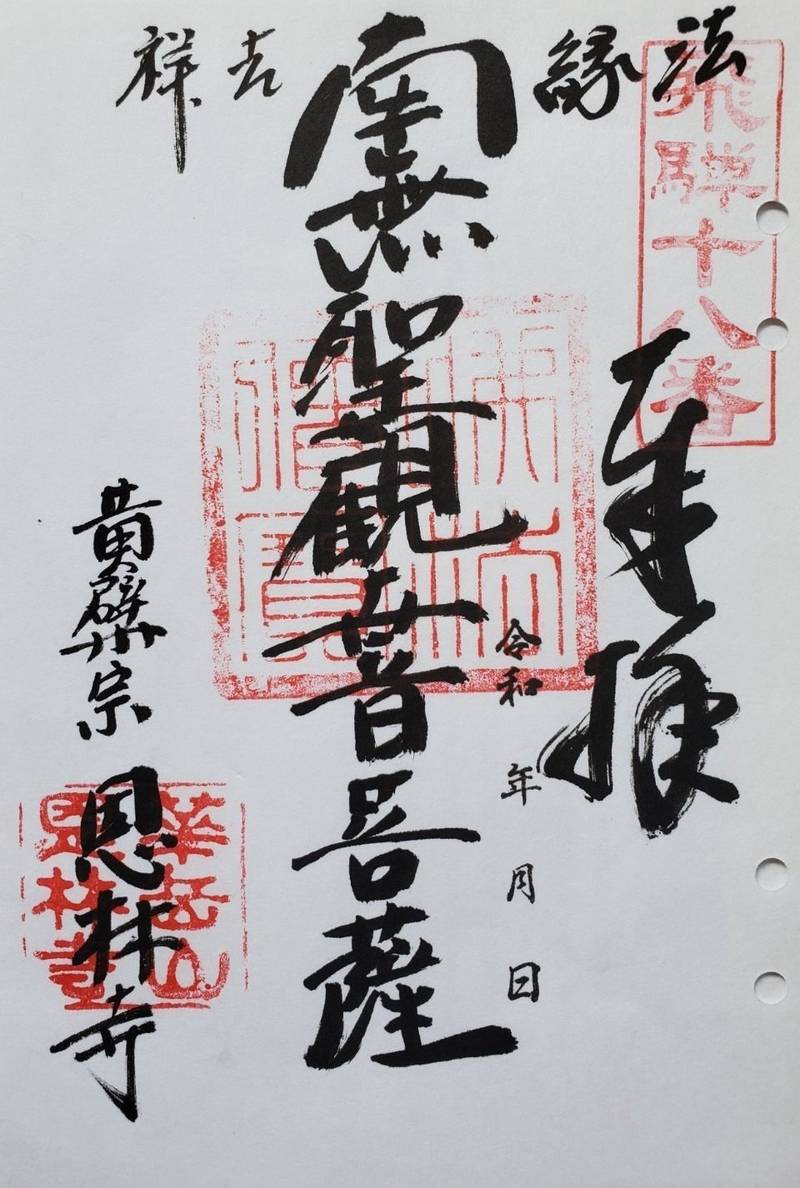 飛驒十八番
法縁
奉拝
令和 年 月 日
南無聖観世音菩薩
吉祥
黄檗宗 恩林寺
華岳山
恩林寺